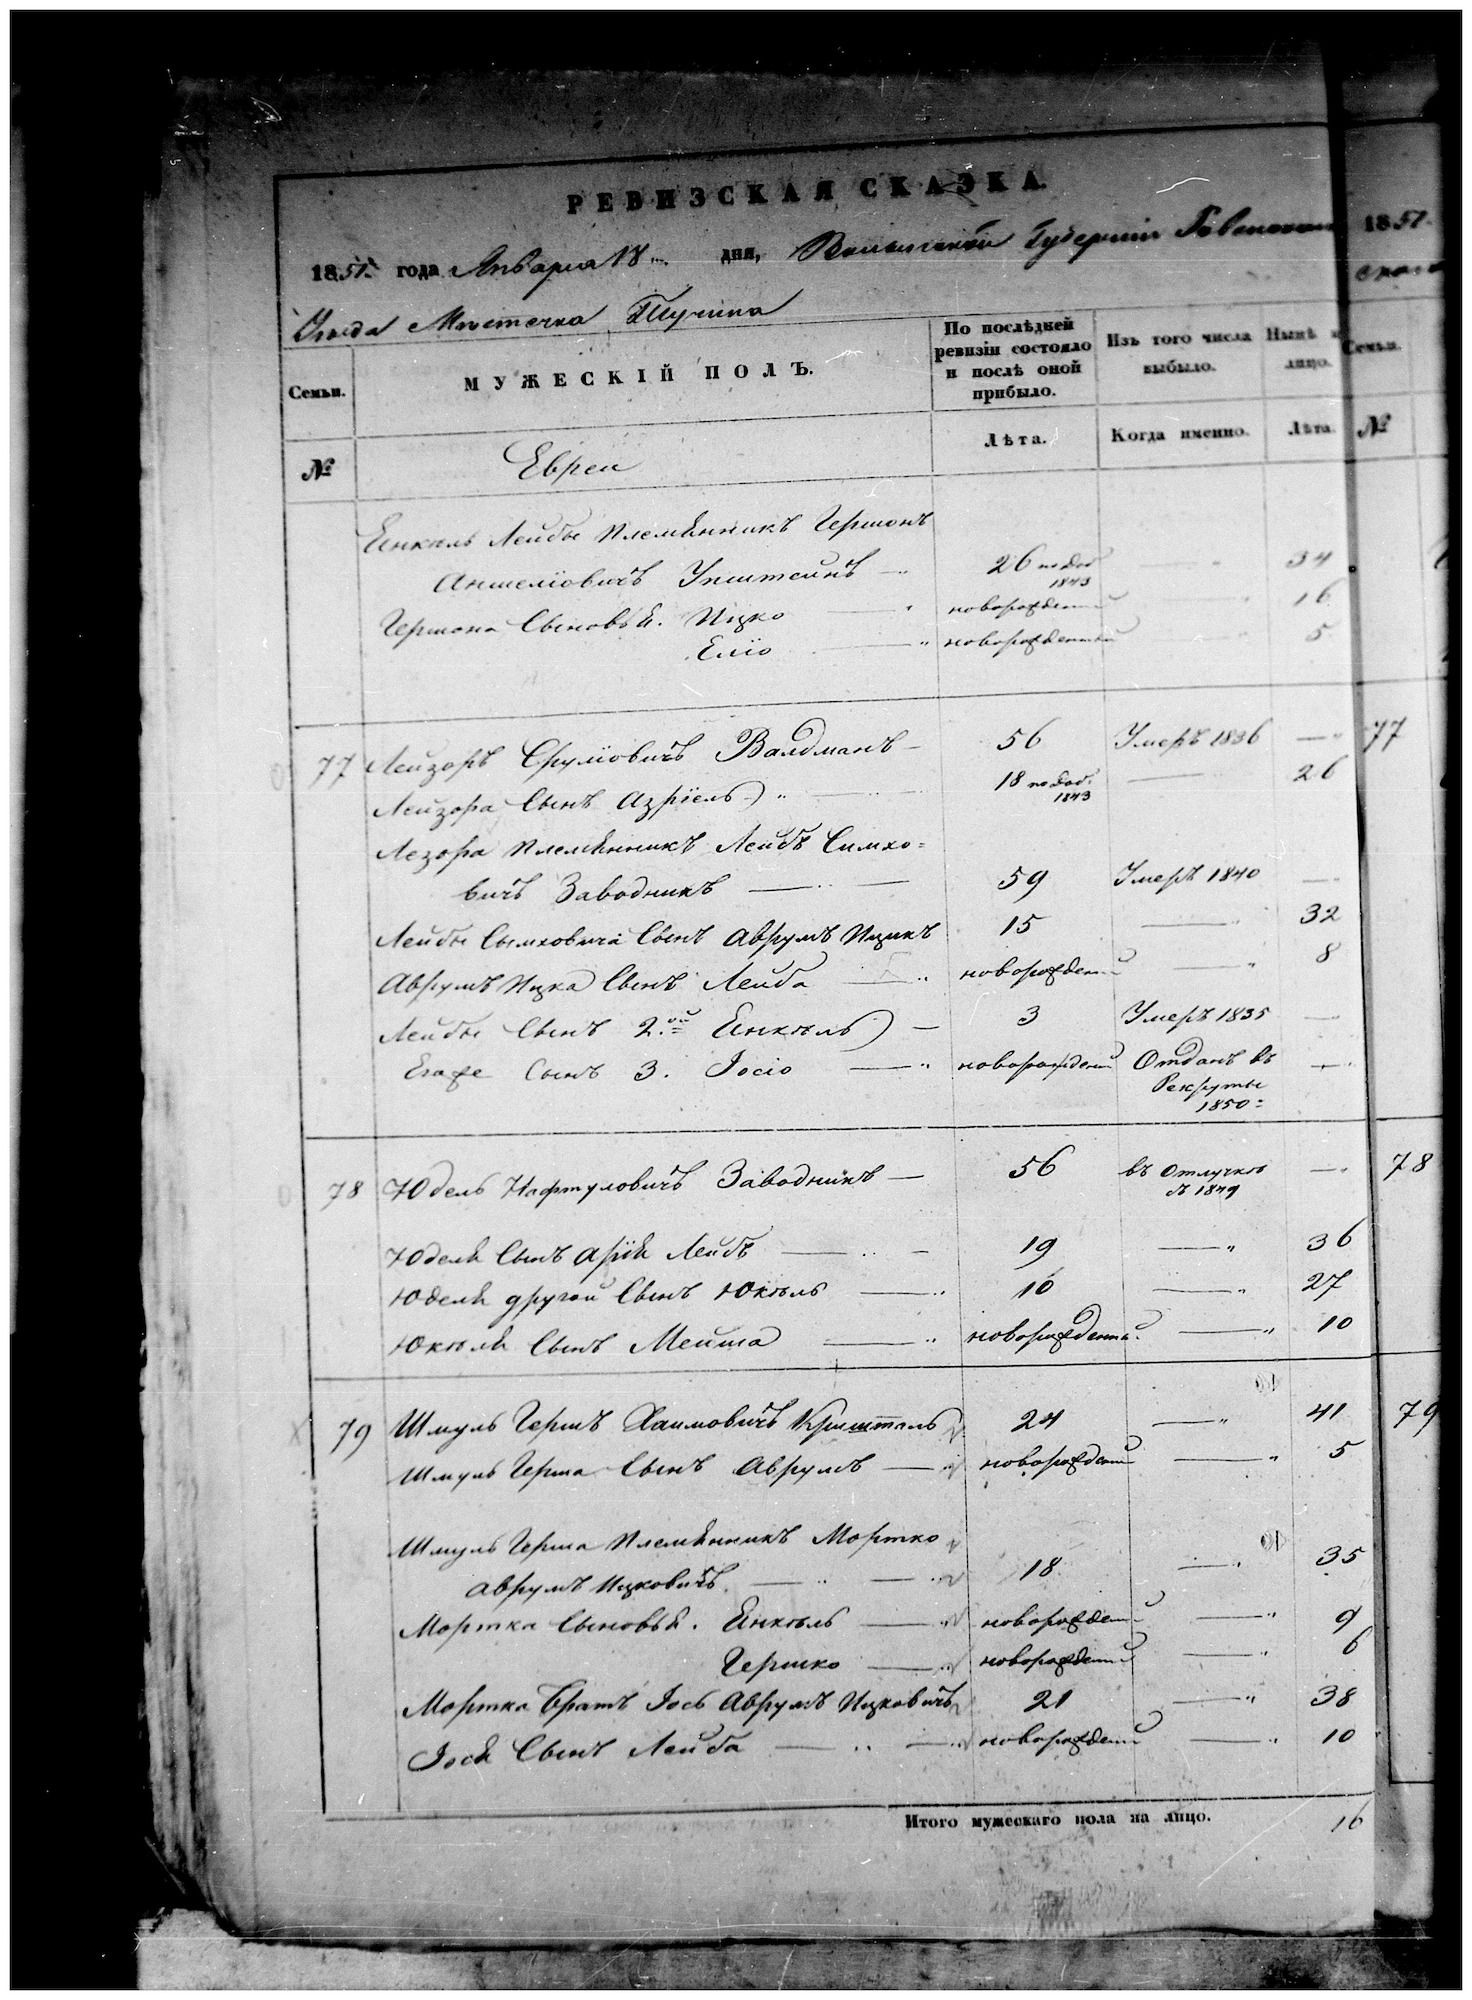 РЕВИЗСКАЯ СКАЗКА.
1851. года Января 18 дня, Волынской Губернiи Ровенскаго 1851
Уѣзда Мѣстечка Тучина
Семьи.
МУЖЕСКIЙ ПОЛЪ.
По послѣдней ревизiи состояло и послѣ оной прибыло.
Изъ того числа выбыло.
Нынѣ
лицо.
Семьи.
№
Евреи
Лѣта.
Когда именно.
Лѣта.
№
Янкель Лейбы племянникъ Гершонъ
Аншелiовичъ Упштейнъ — 26 по доб 1843 — 34
Гершона Сыновья. Ицко — новорожденный — 16
Елiо — новорожденный — 5
77 Лейзоръ Срулiовичъ Валдманъ — 56 Умеръ 1836 — 77
Лейзора Сынъ Азрiель — 18 по доб. 1843 — 26
Лезора племянникъ Лейбъ Симхо=
вичъ Заводникъ — 59 Умеръ 1840 —
Лейбы Сымховича Сынъ Аврумъ Ицикъ 15 — 32
Аврумъ Ицка Сынъ Лейба — новорожденый — 8
Лейбы Сынъ 2.ой Янкель — 3 Умеръ 1835 —
Егоже Сынъ 3. Iосiо — новорожденый Отданъ въ —
Рекруты
1850=
78 Юдель Нафтуловичъ Заводникъ — 56 въ отлучкѣ — 78
съ 1849
Юделя Сынъ Арiя Лейбъ — 19 — 36
Юделя другой Сынъ Юкель — 10 — 27
Юкеля Сынъ Мейша — новорожденный — 10
79 Шмуль Гершъ Хаимовичъ Кришталь 24 — 41 79
Шмуль Герша Сынъ Аврумъ — новорожденый — 5
Шмуль Герша племянникъ Мортко
Аврумъ Ицковичъ — 18 — 35
Мортка Сыновья. Янкель — новорожденый — 9
Гершко — новорожденый — 6
Мортка братъ Iось Аврумъ Ицковичъ 21 — 38
Iося Сынъ Лейба — новорожденый — 10
Итого мужескаго пола на лицо. 16